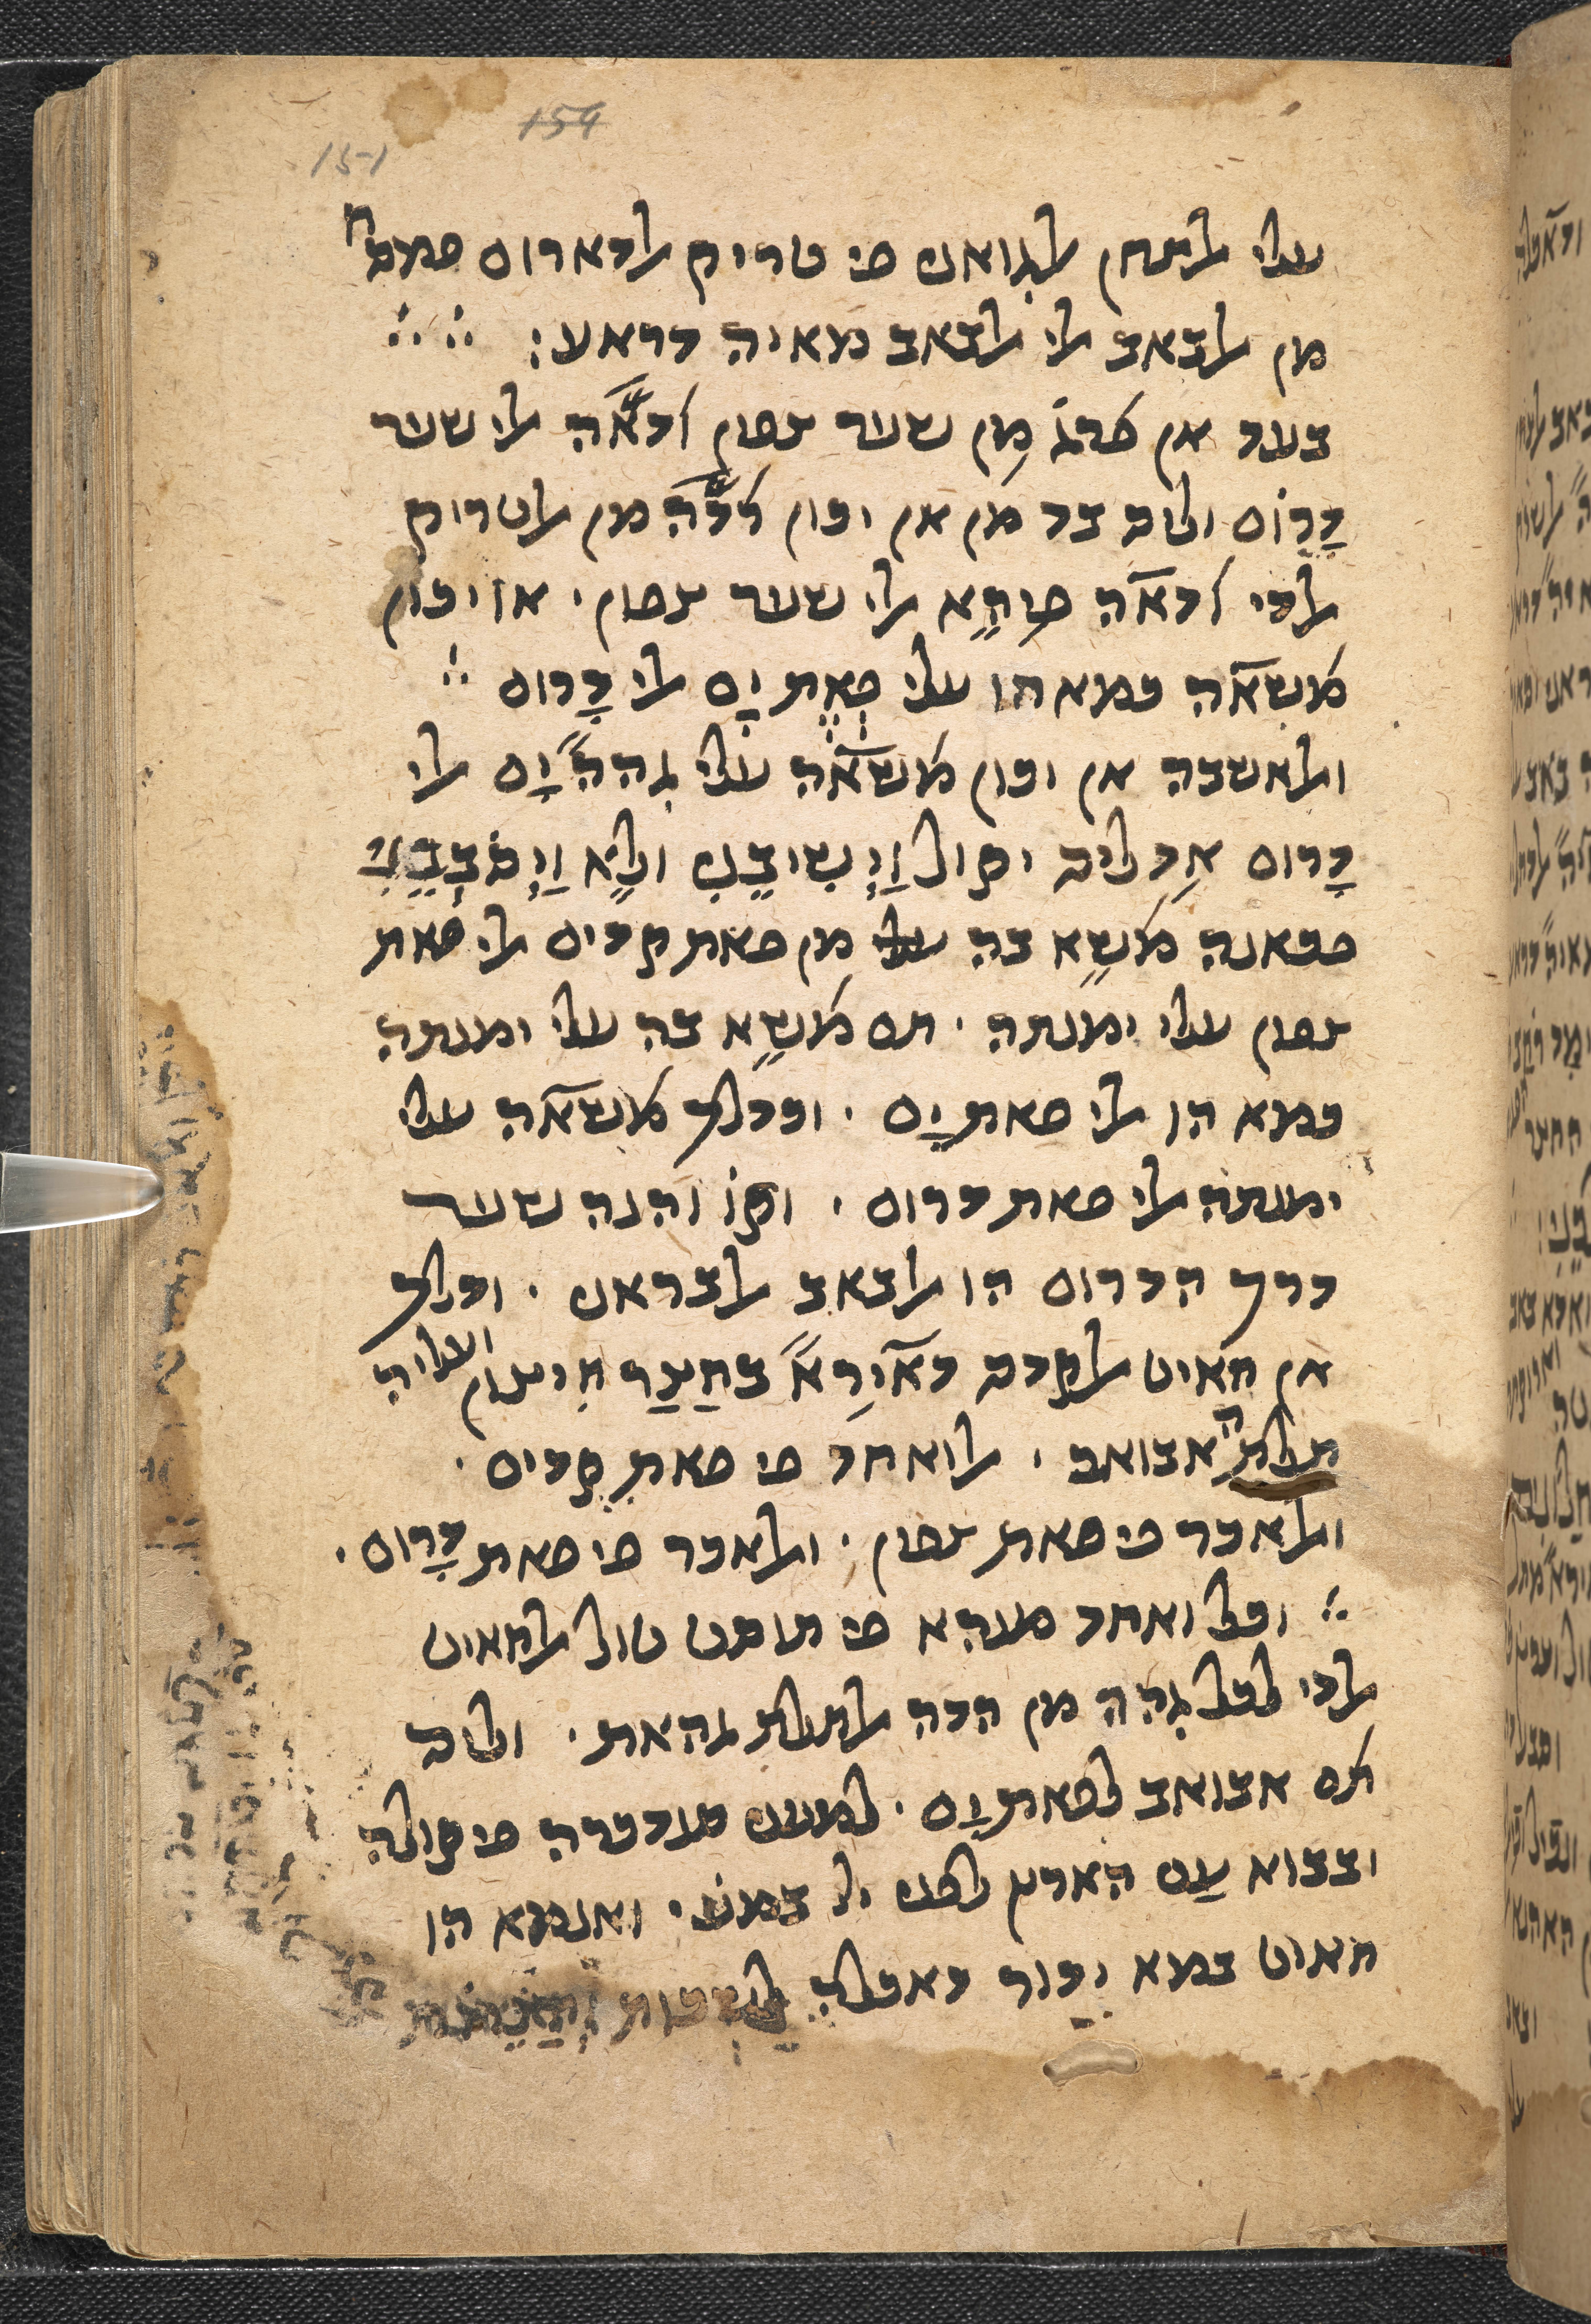 עלי אלצחן אלגואני פי טריק אלדארום פמסח
מן אלבאב אלי אלבאב מאיה דראע:
בעד אן כרג מִן שער צפון אדאה אלי שער
דָרוֹם וליס בד מן אן יכון רדّה מן אלטריק
אלדי אדאה פיהא אלי שער צפון . או יכון
משאה כמא הו עלי פְאַת יָם אלי דָרום
ואלאשבה אן יכון משאה עלי גהה יָם אלי
דָרום אִד ליס יקול וַיְשִיבֵנִי ולא וַיְסֹבְבֵנִי
פכאנה משא בה עלי מן פאת קדים אלי פאת
צפון עלי ימנתה . תם משא בה עלי ימנתה
כמא הו אלי פאת יָם . וכדלך משאה עלי
ימנתה אלי פאת דרום . וקו והנה שער
דרך הדרום הו אלבאב אלבראני . ודלך
אן חאיט אלקדס דאירא בחָצֵר חיצון ועליה
תלתה אבואב . אלואחד פי פאת קדים .
ואלאכר פי פאת צפון . ואלאכר פי פאת דָרום .
וכל ואחד מנהא פי תוסט טול אלחאיט
אלדי לכל גהה מן הדה אלתלת גהאת . וליס
תם אבואב לפאת יָם . למעני סנדכרה פי קולה
ובבוא עַם הארץ לפני יי במוע . ואנמא הו
חאיט כמא ידור דאכלה לשכות